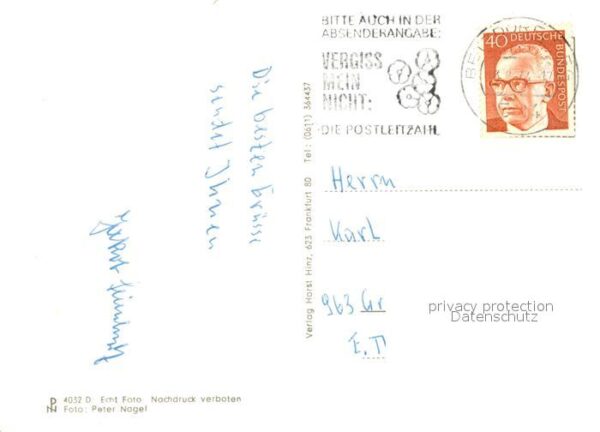 BITTE AUCH IN DER
ABSENDERANGABE:
VERGISS
MEIN
NICHT:
DIE POSTLEITZAHL
40 DEUTSCHE BUNDESPOST
Die besten Grüsse
sendet Ihnen
Verlag Horst Hinz, 623 Frankfurt 80 Tel: (0611) 364437
Herrn
Karl
963 Gr
E.T
privacy protection
Datenschutz
4032 D Echt Foto Nachdruck verboten
Foto: Peter Nagel